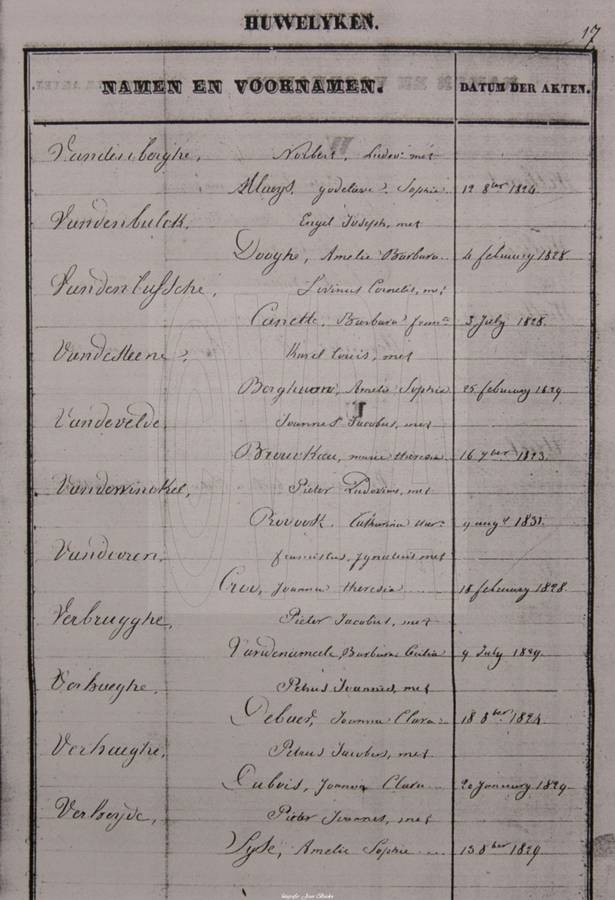 HUWELYKEN.
17
NAMEN EN VOORNAMEN. DATUM DER AKTEN.
Vandenberghe, Norbert, Ludov: met
Maeys, godelieve Sophie 12 8ber 1824
Vandenbulck. Engel Joseph, met
Dooghe, Amelie Barbara 4 february 1828
Vandenbussche, Livinus Cornelis, met
Canette, Barbara 3 July 1828.
Vandesteene, Karel Louis, met
Amelie Sophie 25 february 1829
Vandevelde. Joannes Jacobus, met
marie theresia 16 7ber 1823.
Vandewinckel, Pieter Ludovicus, met
Catharina 9 augt 1831.
Vandooren. franciscus, Ignatius met
Cree, Joanna theresia 18 february 1828.
Verbrugghe, Pieter Jacobus, met
Vandenameele, Barbara Cecilia 9 July 1829.
Verhaeghe, Petrus Joannes, met
Debaer, Joanna Clara 18 8ber 1824
Verhaeghe, Petrus Jacobus, met
Dubois, Joanna Clara 20 January 1829
Verheyde, Pieter Joannes, met
Syse, Amelie Sophie 13 8ber 1829